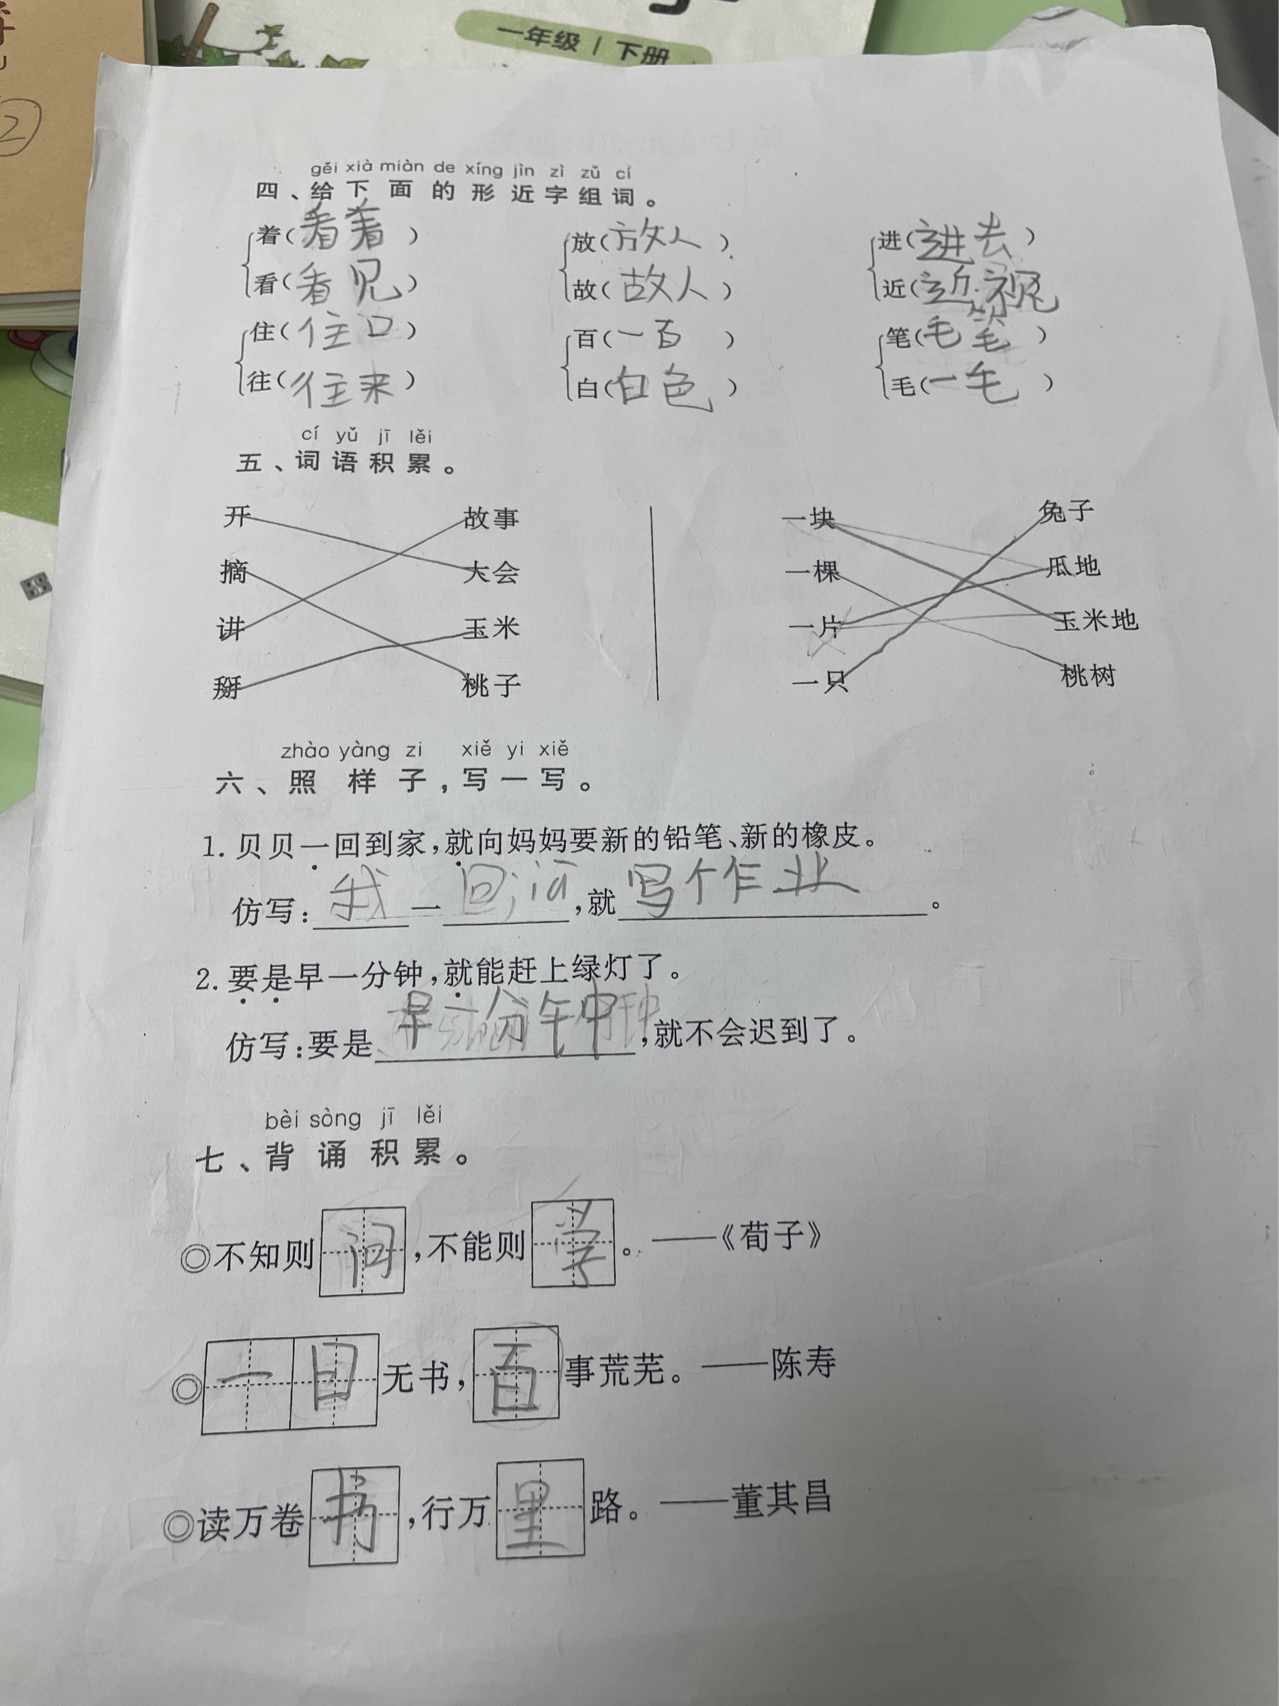 一年级 | 下册
2
gěi xià miàn de xíng jìn zì zǔ cí
四、给下面的形近字组词。
着(看着) 放(放人) 进(进去)
看(看见) 故(故人) 近(近视)
住(住口) 百(一百) 笔(毛笔)
往(往来) 白(白色) 毛(一毛)
cí yǔ jī lěi
五、词语积累。
开 故事 一块 兔子
摘 大会 一棵 瓜地
讲 玉米 一片 玉米地
掰 桃子 一只 桃树
zhào yàng zi xiě yi xiě
六、照样子,写一写。
1. 贝贝一回到家,就向妈妈要新的铅笔、新的橡皮。
仿写:我一回,就写个作业。
2. 要是早一分钟,就能赶上绿灯了。
仿写:要是早一分钟,就不会迟到了。
bèi sòng jī lěi
七、背诵积累。
◎不知则问,不能则学。——《荀子》
◎一日无书,百事荒芜。——陈寿
◎读万卷书,行万里路。——董其昌